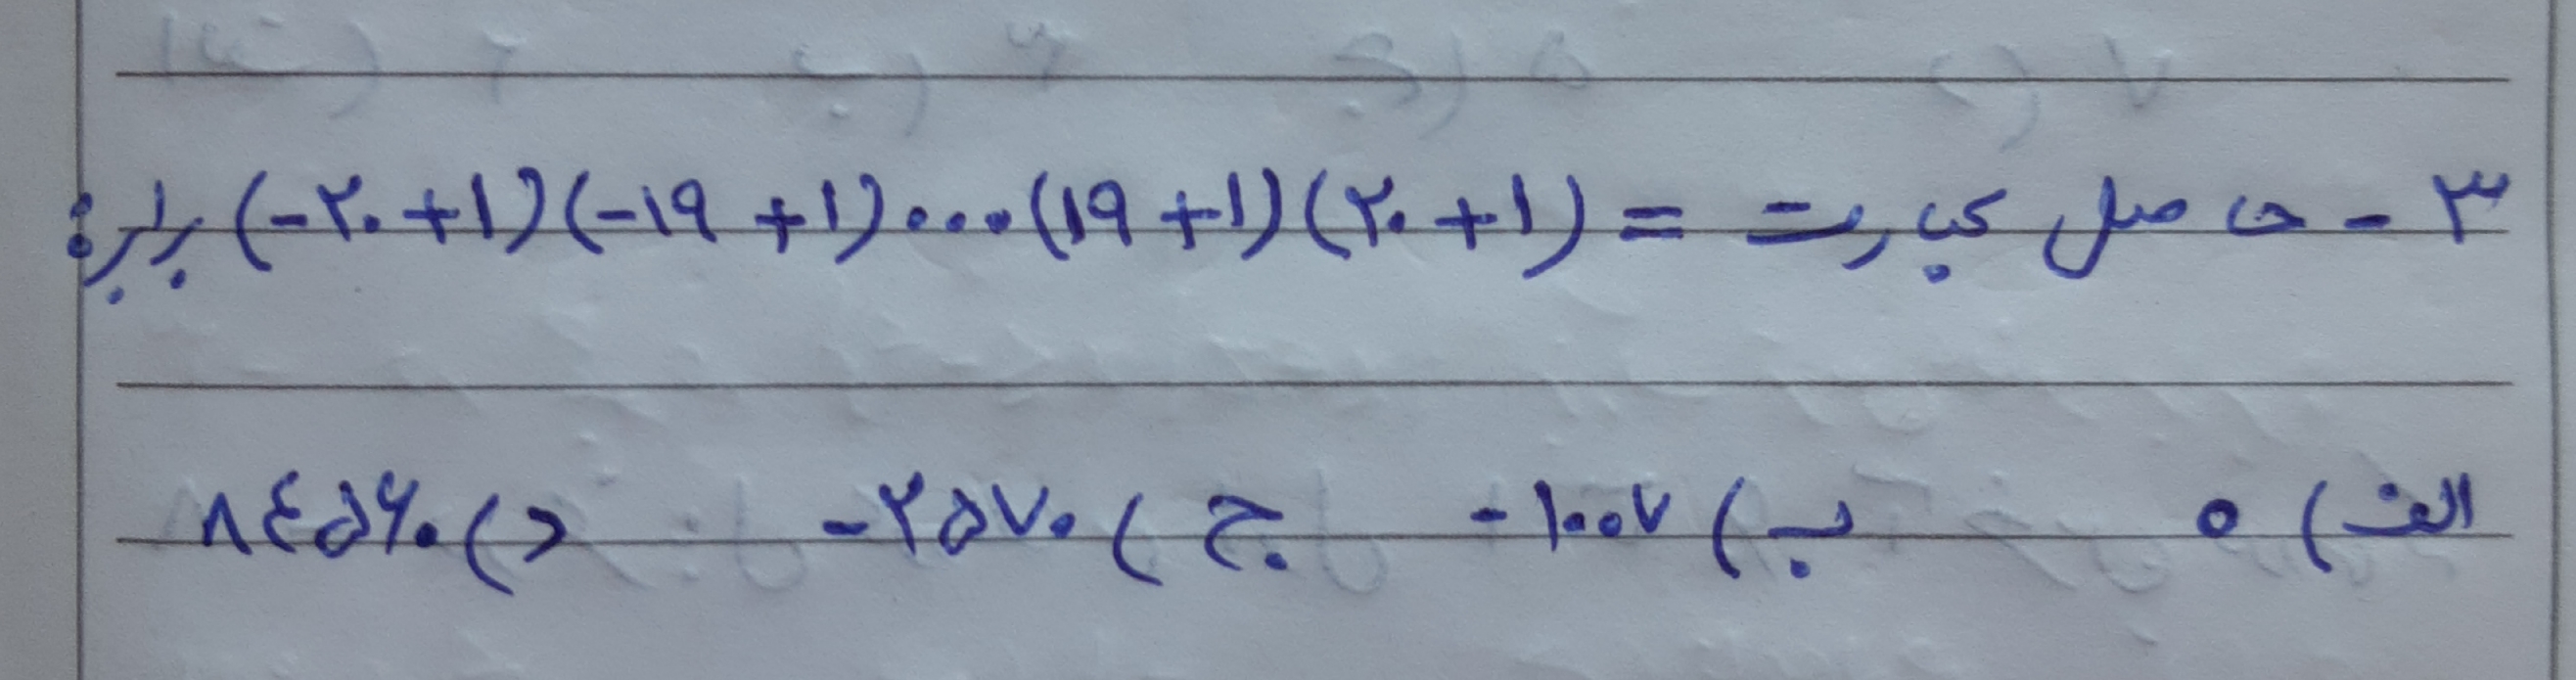 ۳ - حاصل عبارت = (۲۰ + ۱) (۱۹ + ۱) ... (-۱۹ + ۱) (-۲۰ + ۱) برابره:
الف) ۰ ب) -۱۰۰۷ ج) -۲۵۷۰ د) ۸۴۵۶۰